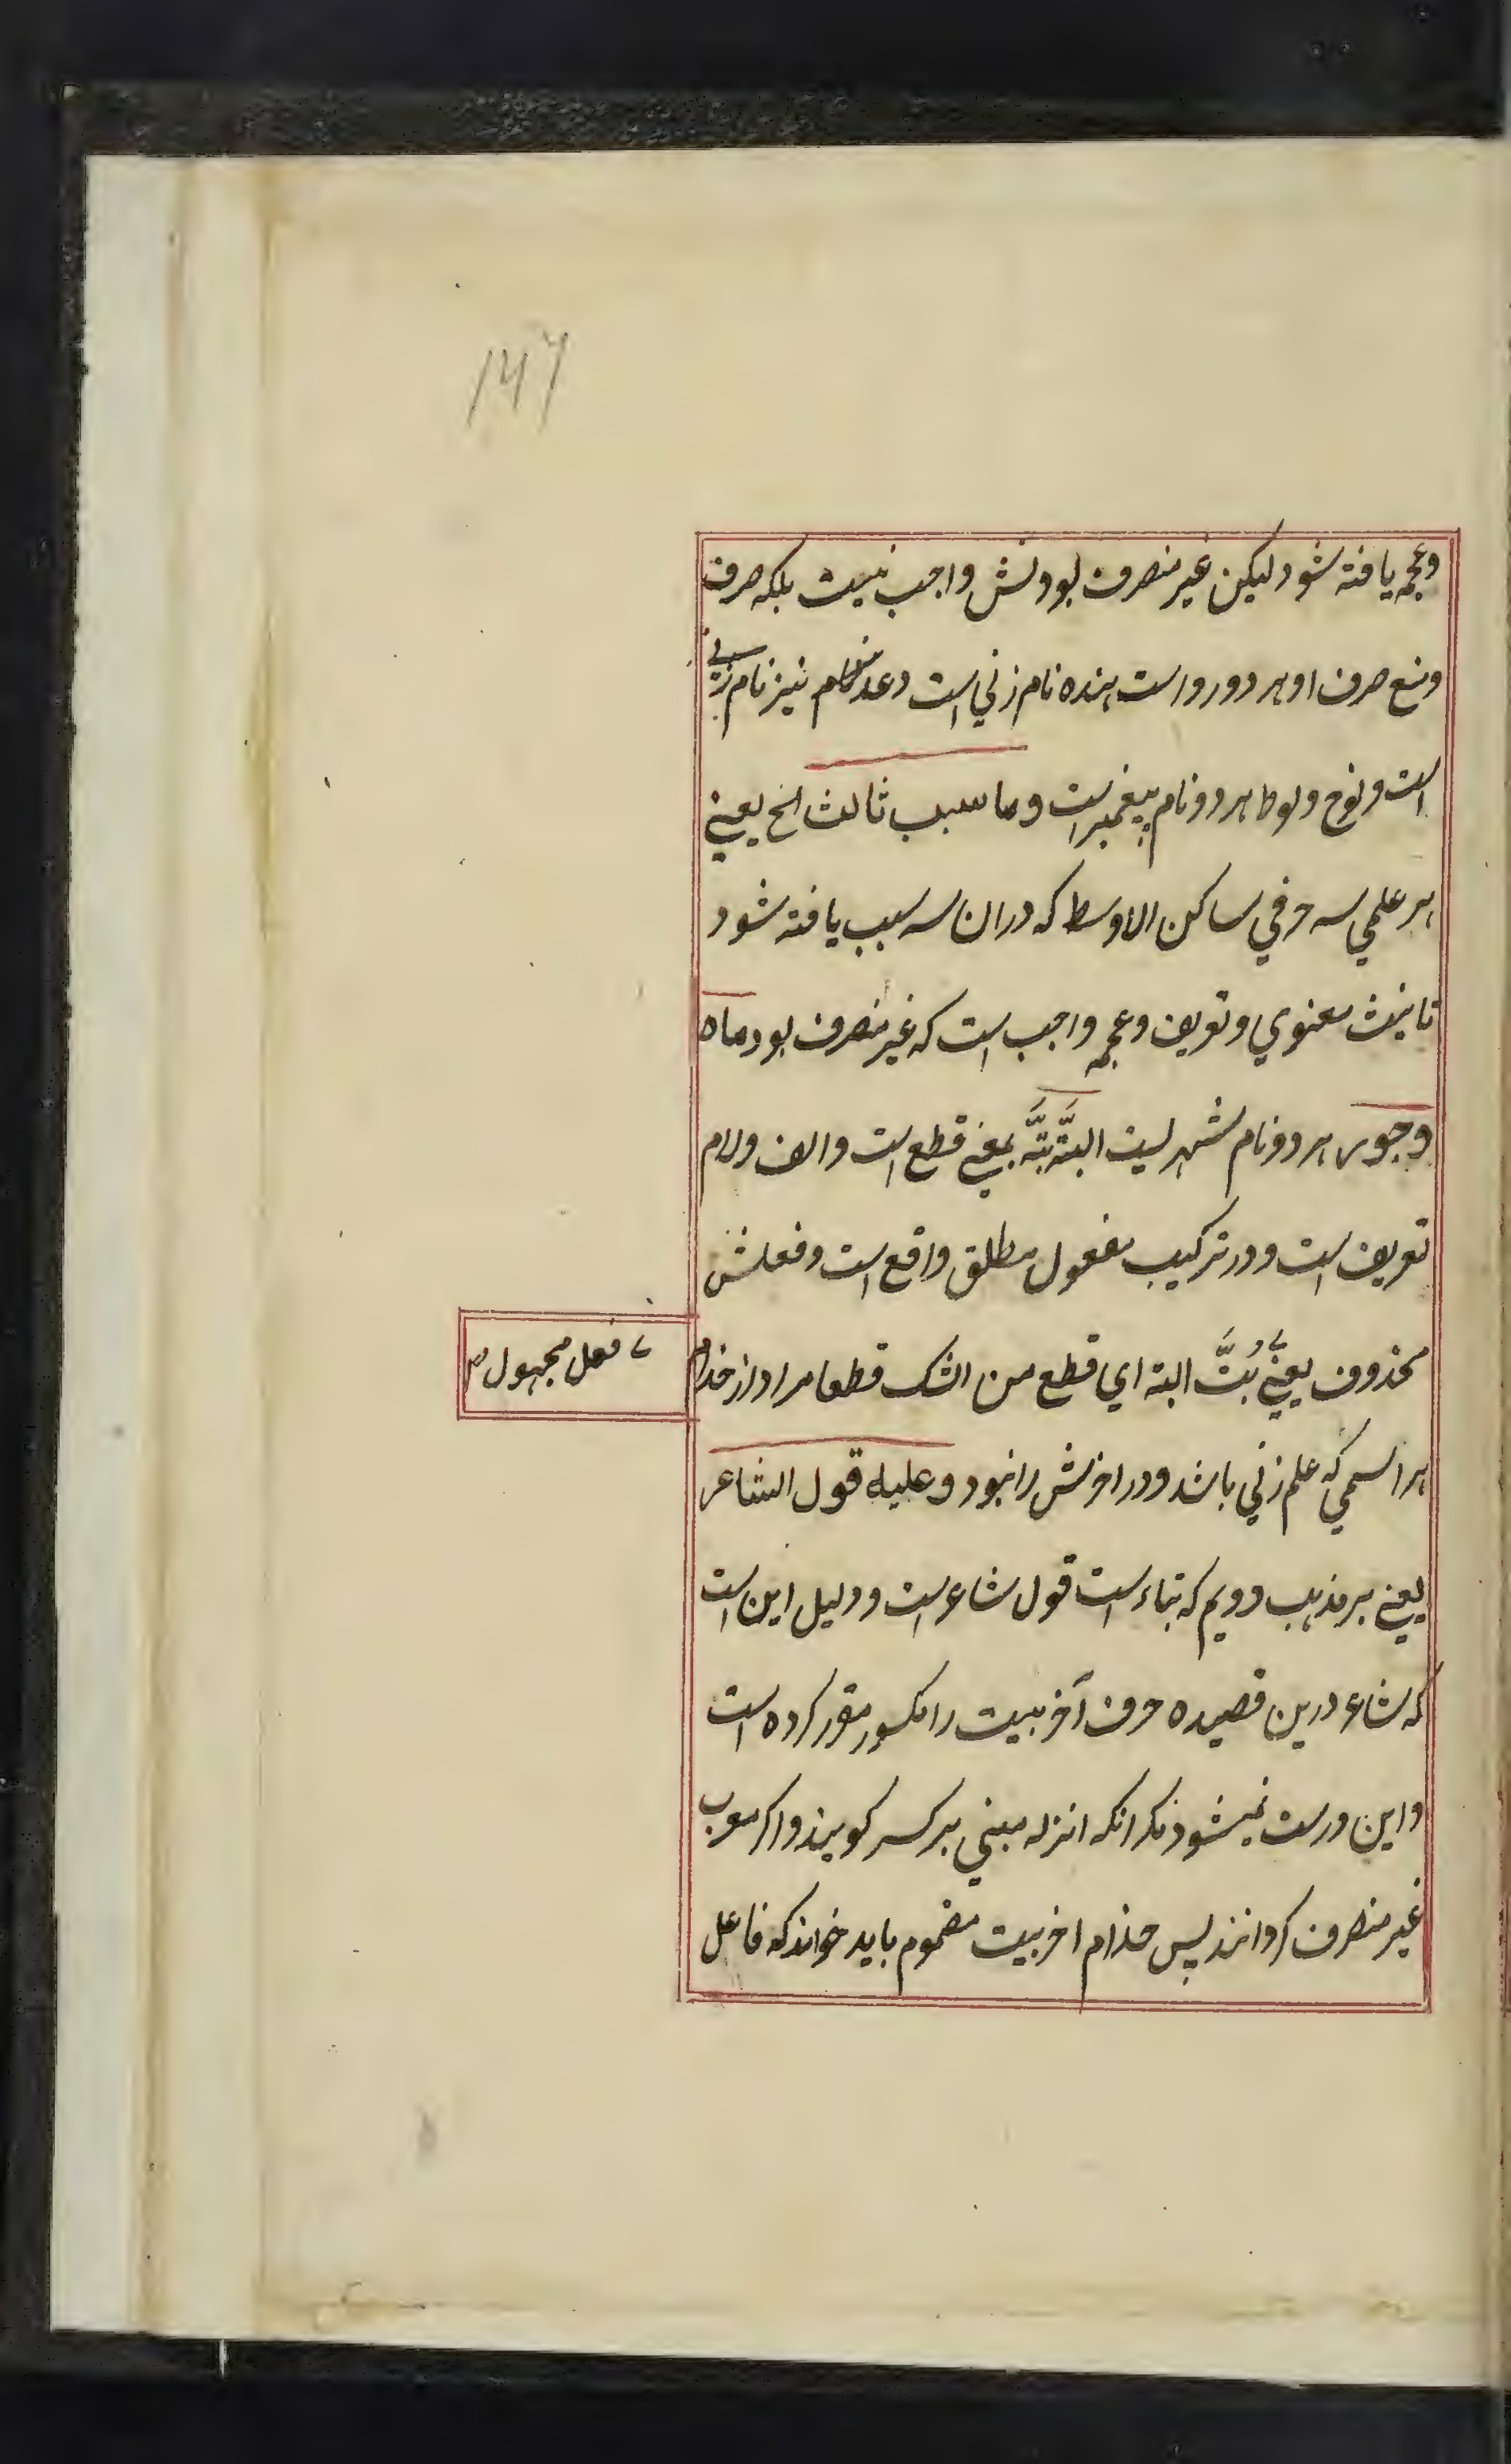 ۱۲۶
وعجمه یافته شود لیکن غیر منصرف بودنش واجب نیست بلکه صرف
ومنع صرف او هر دو رواست هنده نام زني است و نیز نام زنے
است ونوح ولوط هر دو نام پیغمبر است وما سبب ثالث الخ یعنے
هر علمي سه حرفي ساکن الاوسط که دران سه سبب یافته شود
تانیث معنوي وتعریف وعجمه واجب است که غیر منصرف بود ماه
وجور هر دو نام شهر لیست البتَّه بتَّه بمعنے قطع است والف ولام
تعریف است ودر ترکیب مفعول مطلق واقع است وفعلش
محذوف یعنے بُتَّ البته اي قطع من الشک قطعا مراد از حذام
فعل مجهول ۱۲
هر اسمي که علم زني باشد ودر اخرش را نبود وعلیه قول الشاعر
یعنے بر مذهب دویم که بناء است قول شاعر است ودلیل این است
که شاعر درین قصیده حرف آخر بیت را مکسور مقرر کرده است
واین درست نمیشود مکر انکه انرا مبني بر کسر کویند واکر معرب
غیر منصرف کردانند پس حذام اخر بیت مضموم باید خواند که فاعل